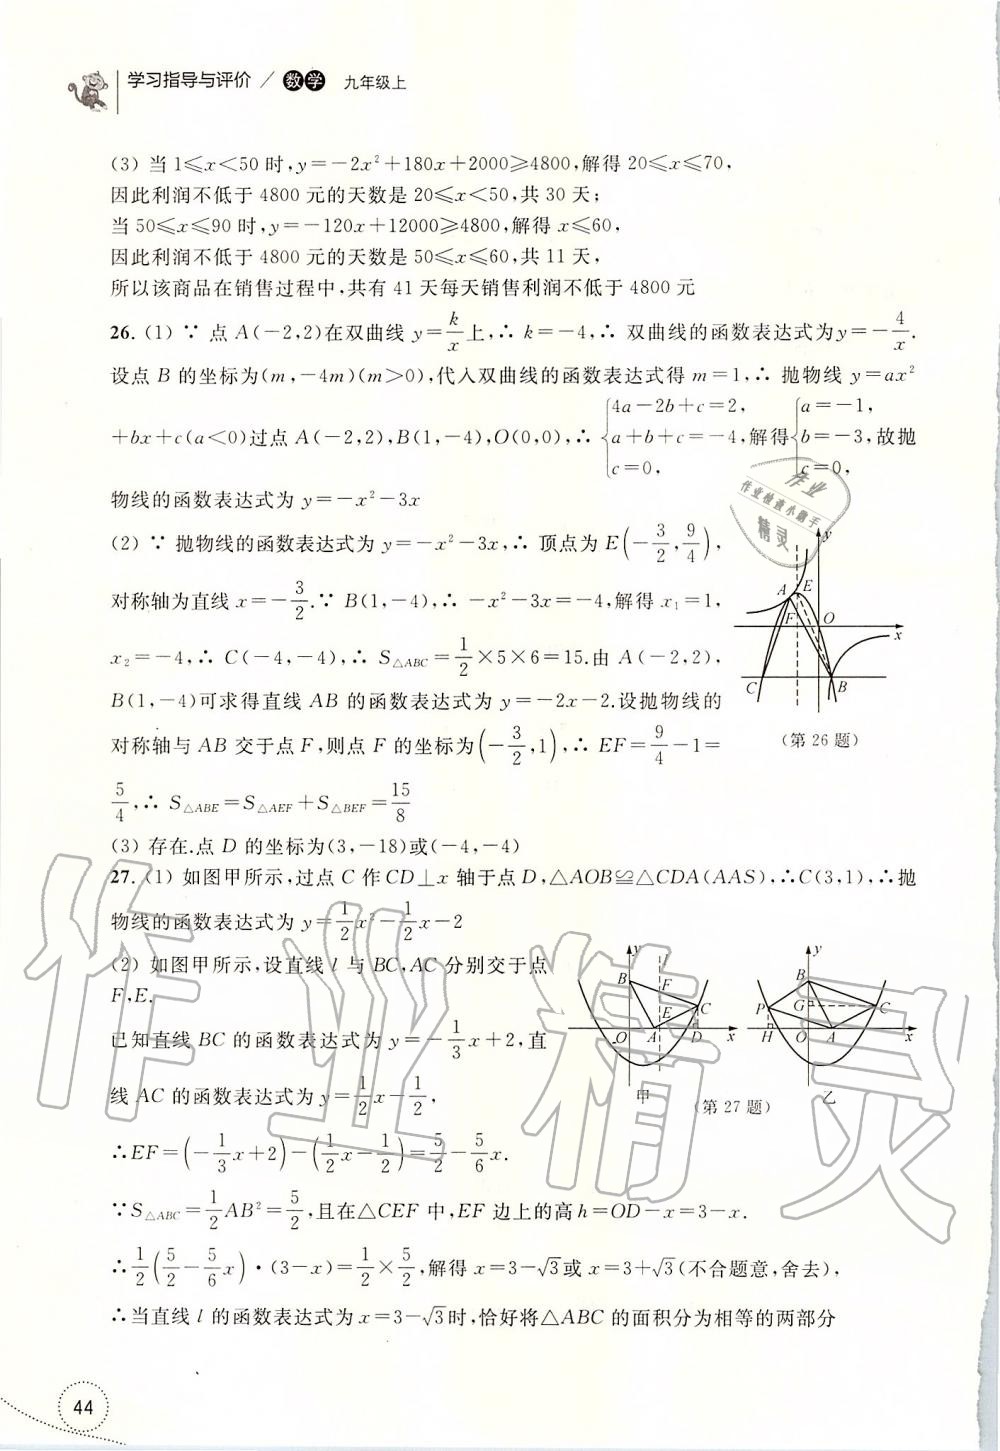 学习指导与评价 / 数学 九年级上
(3) 当 1≤x<50 时,y=-2x²+180x+2000≥4800,解得 20≤x≤70,
因此利润不低于 4800 元的天数是 20≤x<50,共 30 天;
当 50≤x≤90 时,y=-120x+12000≥4800,解得 x≤60,
因此利润不低于 4800 元的天数是 50≤x≤60,共 11 天,
所以该商品在销售过程中,共有 41 天每天销售利润不低于 4800 元
26. (1) ∵ 点 A(-2,2)在双曲线 y=k/x 上,∴ k=-4,∴ 双曲线的函数表达式为y=-4/x.
设点 B 的坐标为(m,-4m)(m>0),代入双曲线的函数表达式得 m=1,∴ 抛物线 y=ax²
+bx+c(a<0)过点 A(-2,2),B(1,-4),O(0,0),∴ {4a-2b+c=2, a+b+c=-4, c=0, 解得{a=-1, b=-3, c=0, 故抛
物线的函数表达式为 y=-x²-3x
(2) ∵ 抛物线的函数表达式为 y=-x²-3x,∴ 顶点为 E(-3/2,9/4),
对称轴为直线 x=-3/2.∵ B(1,-4),∴ -x²-3x=-4,解得 x₁=1,
x₂=-4,∴ C(-4,-4),∴ S△ABC=1/2×5×6=15.由 A(-2,2),
B(1,-4)可求得直线 AB 的函数表达式为 y=-2x-2.设抛物线的
对称轴与 AB 交于点 F,则点 F 的坐标为(-3/2,1),∴ EF=9/4-1=
5/4,∴ S△ABE=S△AEF+S△BEF=15/8
y
A
E
F
O
x
C
B
(第 26 题)
(3) 存在.点 D 的坐标为(3,-18)或(-4,-4)
27. (1) 如图甲所示,过点 C 作 CD⊥x 轴于点 D,△AOB≌△CDA(AAS),∴C(3,1),∴抛
物线的函数表达式为 y=1/2x²-1/2x-2
(2) 如图甲所示,设直线 l 与 BC,AC 分别交于点
F,E.
已知直线 BC 的函数表达式为 y=-1/3x+2,直
线 AC 的函数表达式为 y=1/2x-1/2,
∴EF=(-1/3x+2)-(1/2x-1/2)=5/2-5/6x.
y
B
F
C
E
O
A
D
x
甲
y
B
P
G
C
H
O
A
x
乙
(第 27 题)
∵S△ABC=1/2AB²=5/2,且在△CEF 中,EF 边上的高h=OD-x=3-x.
∴1/2(5/2-5/6x)·(3-x)=1/2×5/2,解得 x=3-√3或 x=3+√3(不合题意,舍去),
∴当直线 l 的函数表达式为 x=3-√3时,恰好将△ABC 的面积分为相等的两部分
44
作业
作业检查小助手
精灵
作业精灵